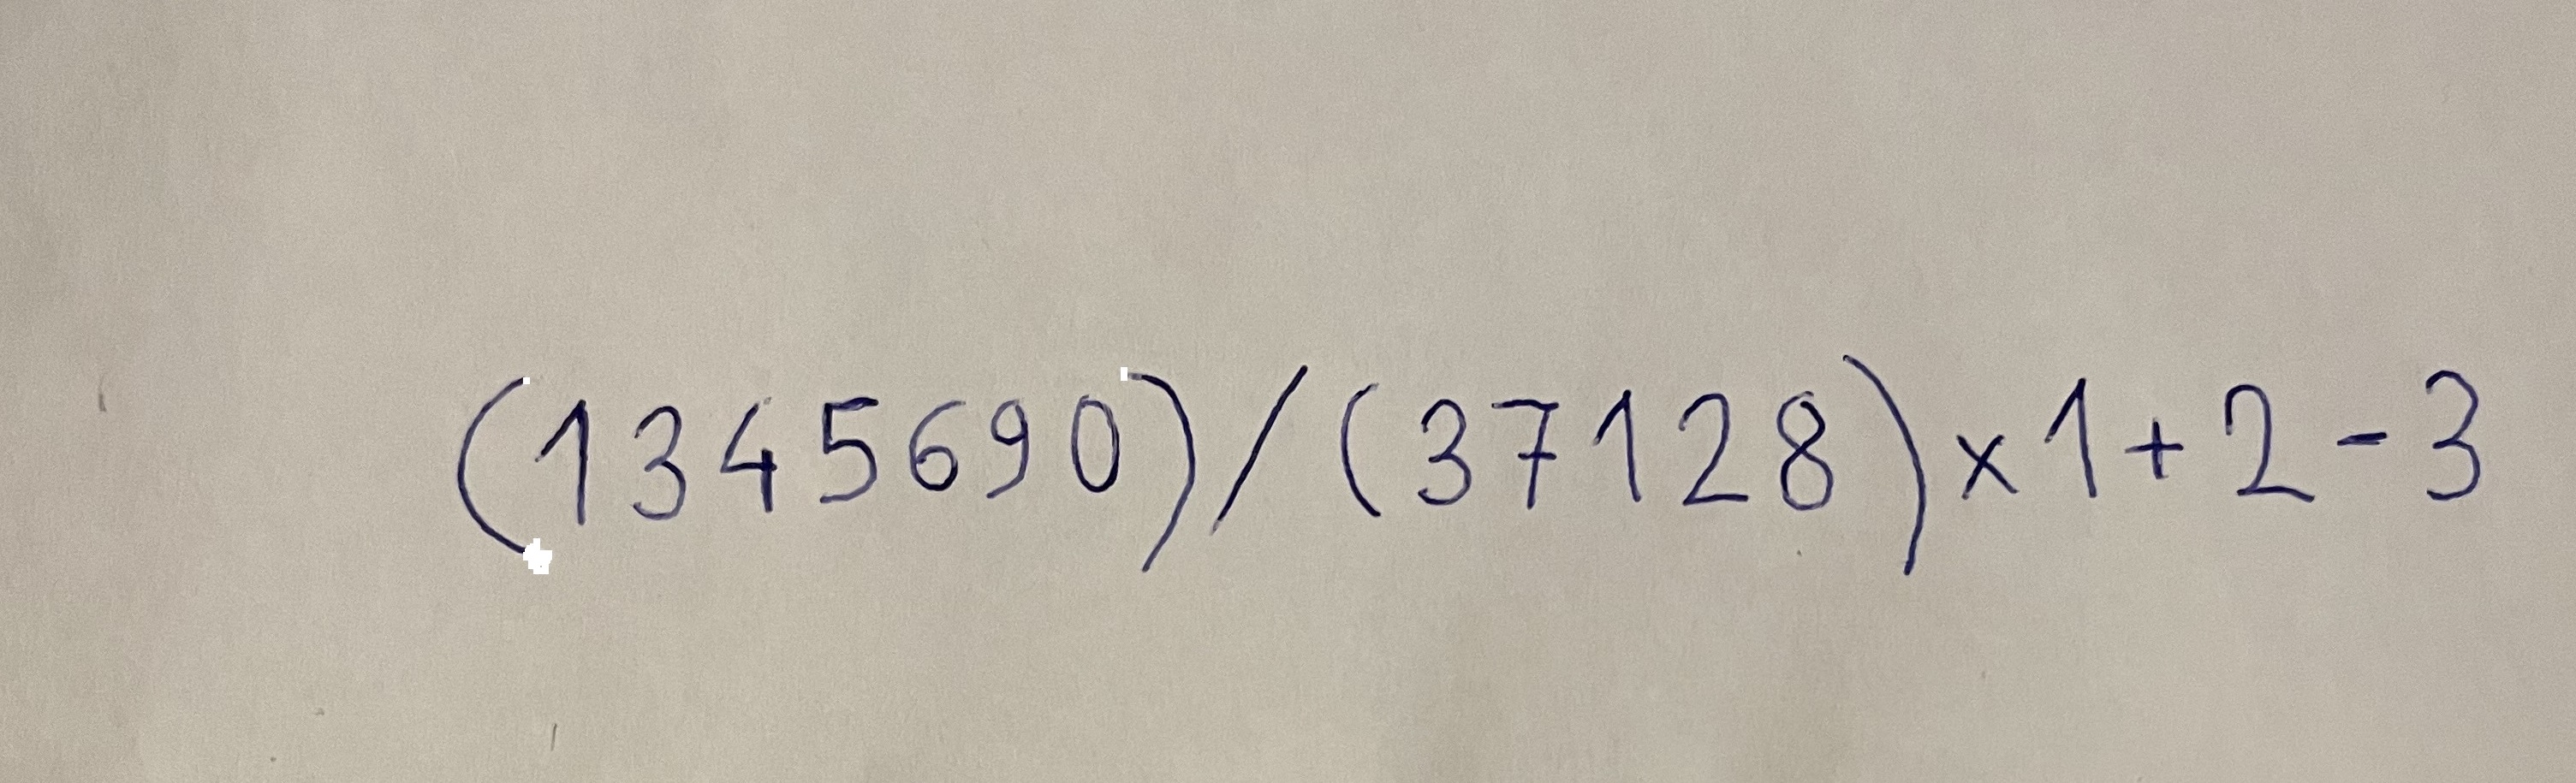 (1345690)/(37128)×1+2-3